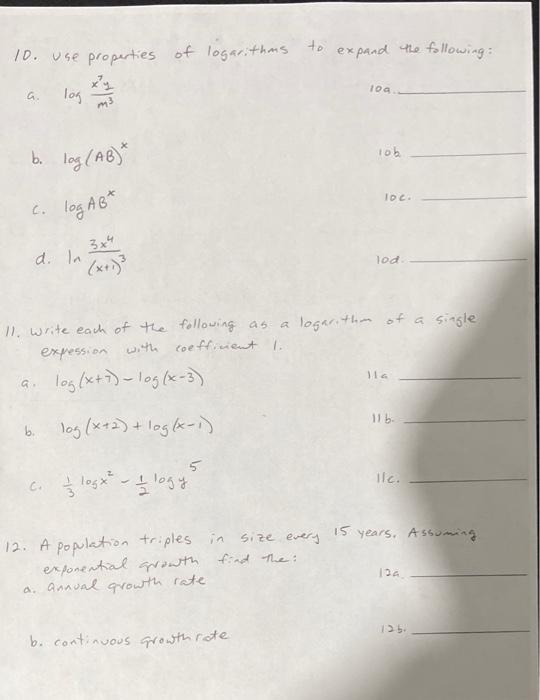 10. use properties of logarithms to expand the following:
a. log x⁷y/m³ 10a.
b. log(AB)ˣ 10b
c. log ABˣ 10c.
d. ln 3x⁴/(x+1)³ 10d.
11. Write each of the following as a logarithm of a single
expession with coefficient 1.
a. log(x+7) - log(x-3) 11a
b. log(x+2) + log(x-1) 11b.
c. 1/3 log x² - 1/2 log y⁵ 11c.
12. A population triples in size every 15 years. Assuming
exponential growth find the:
a. annual growth rate 12a
b. continuous growth rate 12b.